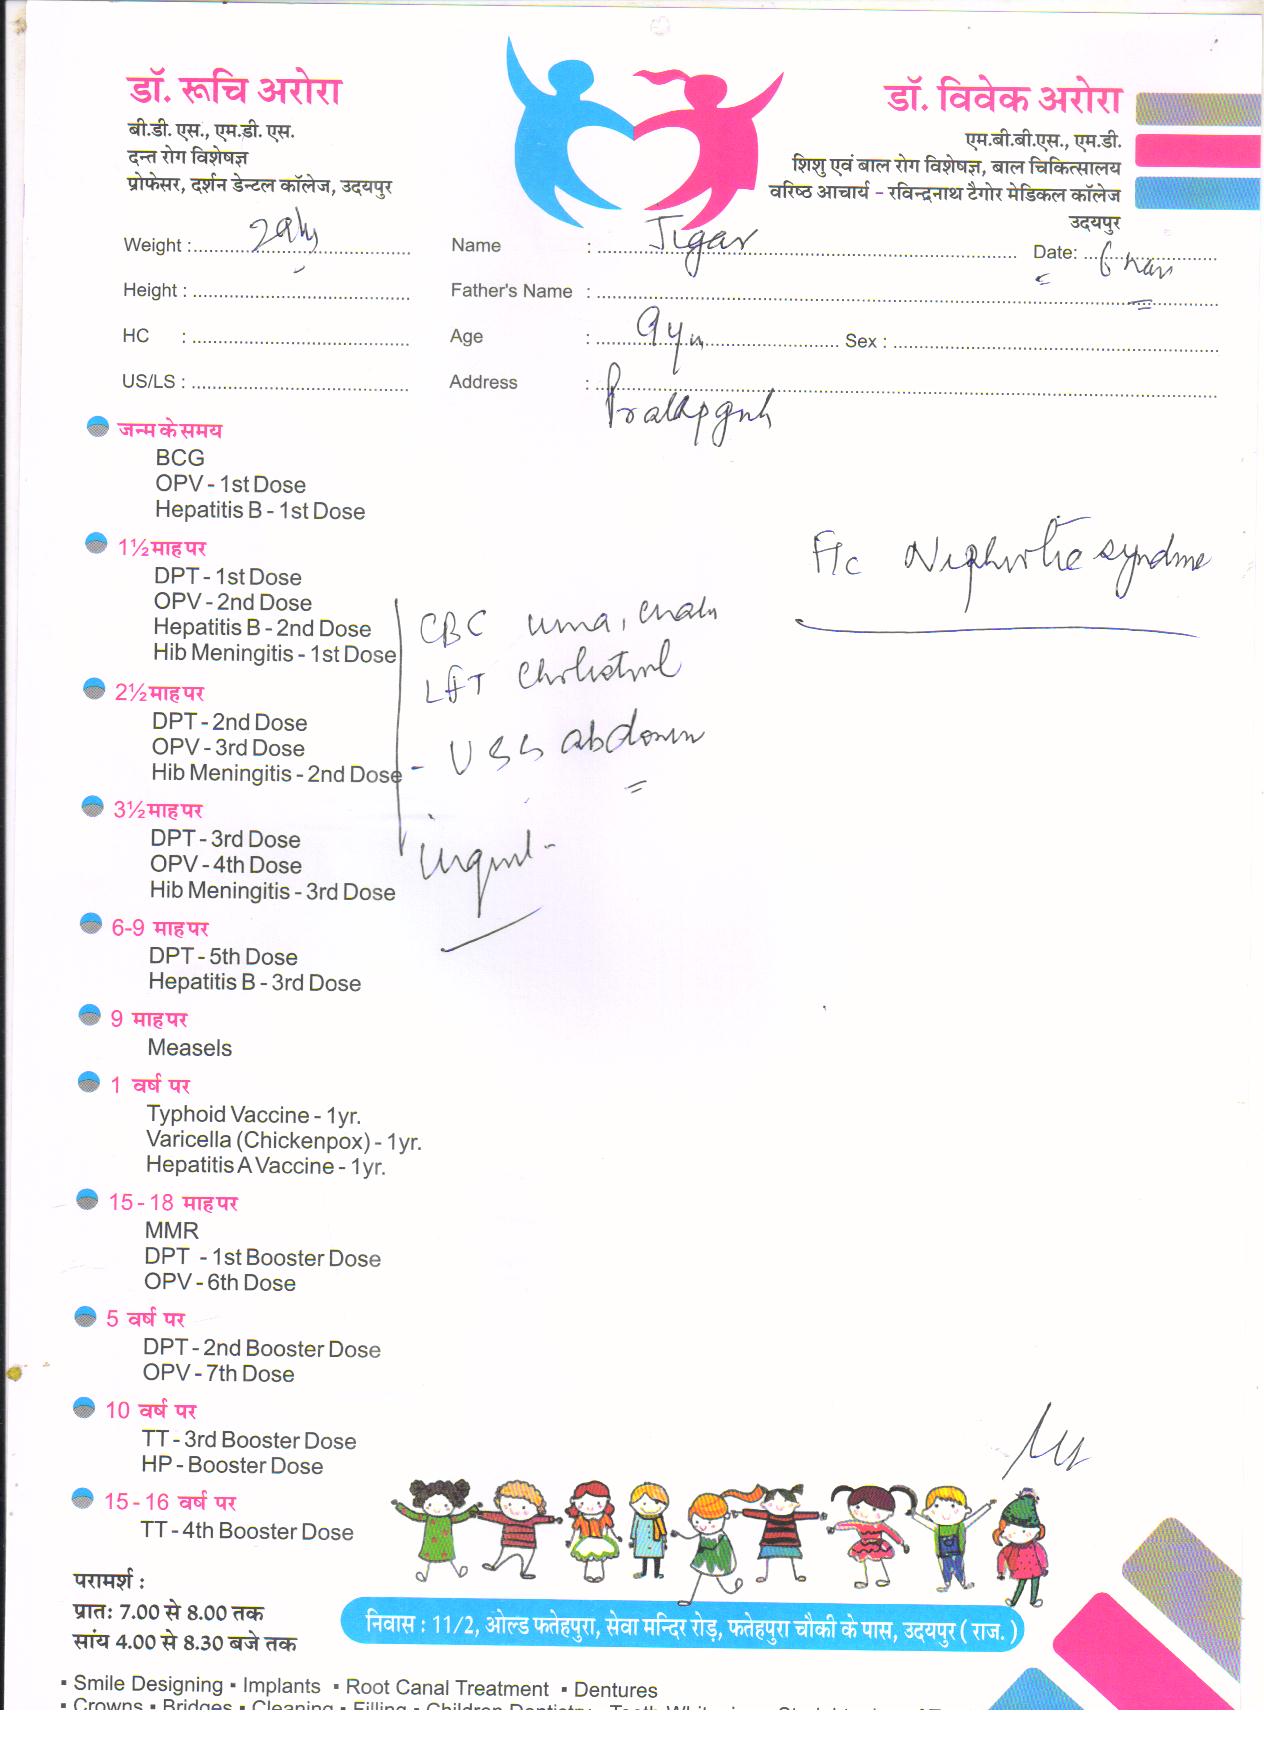 डॉ. रूचि अरोरा
बी.डी. एस., एम.डी. एस.
दन्त रोग विशेषज्ञ
प्रोफेसर, दर्शन डेन्टल कॉलेज, उदयपुर
डॉ. विवेक अरोरा
एम.बी.बी.एस., एम.डी.
शिशु एवं बाल रोग विशेषज्ञ, बाल चिकित्सालय
वरिष्ठ आचार्य - रविन्द्रनाथ टैगोर मेडिकल कॉलेज
उदयपुर
Weight : Name : Jigar Date:
Height : Father's Name :
HC : Age : 9 yrs Sex :
US/LS : Address :
Pratapgarh
जन्म के समय
BCG
OPV - 1st Dose
Hepatitis B - 1st Dose
Nephrotic syndrome
1½ माह पर
DPT - 1st Dose
OPV - 2nd Dose
Hepatitis B - 2nd Dose
Hib Meningitis - 1st Dose
CBC urea, creatn
LFT Cholestrol
- USG abdomen
urgent -
2½ माह पर
DPT - 2nd Dose
OPV - 3rd Dose
Hib Meningitis - 2nd Dose
3½ माह पर
DPT - 3rd Dose
OPV - 4th Dose
Hib Meningitis - 3rd Dose
6-9 माह पर
DPT - 5th Dose
Hepatitis B - 3rd Dose
9 माह पर
Measels
1 वर्ष पर
Typhoid Vaccine - 1yr.
Varicella (Chickenpox) - 1yr.
Hepatitis A Vaccine - 1yr.
15 - 18 माह पर
MMR
DPT - 1st Booster Dose
OPV - 6th Dose
5 वर्ष पर
DPT - 2nd Booster Dose
OPV - 7th Dose
10 वर्ष पर
TT - 3rd Booster Dose
HP - Booster Dose
15 - 16 वर्ष पर
TT - 4th Booster Dose
परामर्श :
प्रातः 7.00 से 8.00 तक
सांय 4.00 से 8.30 बजे तक
निवास : 11/2, ओल्ड फतेहपुरा, सेवा मन्दिर रोड़, फतेहपुरा चौकी के पास, उदयपुर ( राज. )
▪ Smile Designing ▪ Implants ▪ Root Canal Treatment ▪ Dentures
▪ Crowns ▪ Bridges ▪ Cleaning ▪ Filling ▪ Children Dentistry